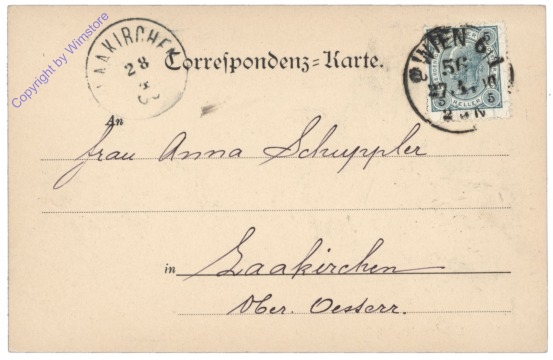 Copyright by Wimstore
LAAKIRCHEN
28
3
Correspondenz=Karte.
WIEN 6/1
56
27.
5 HELLER 5
2 N
An
Frau Anna Schuppler
in Laakirchen
Ober. Oesterr.